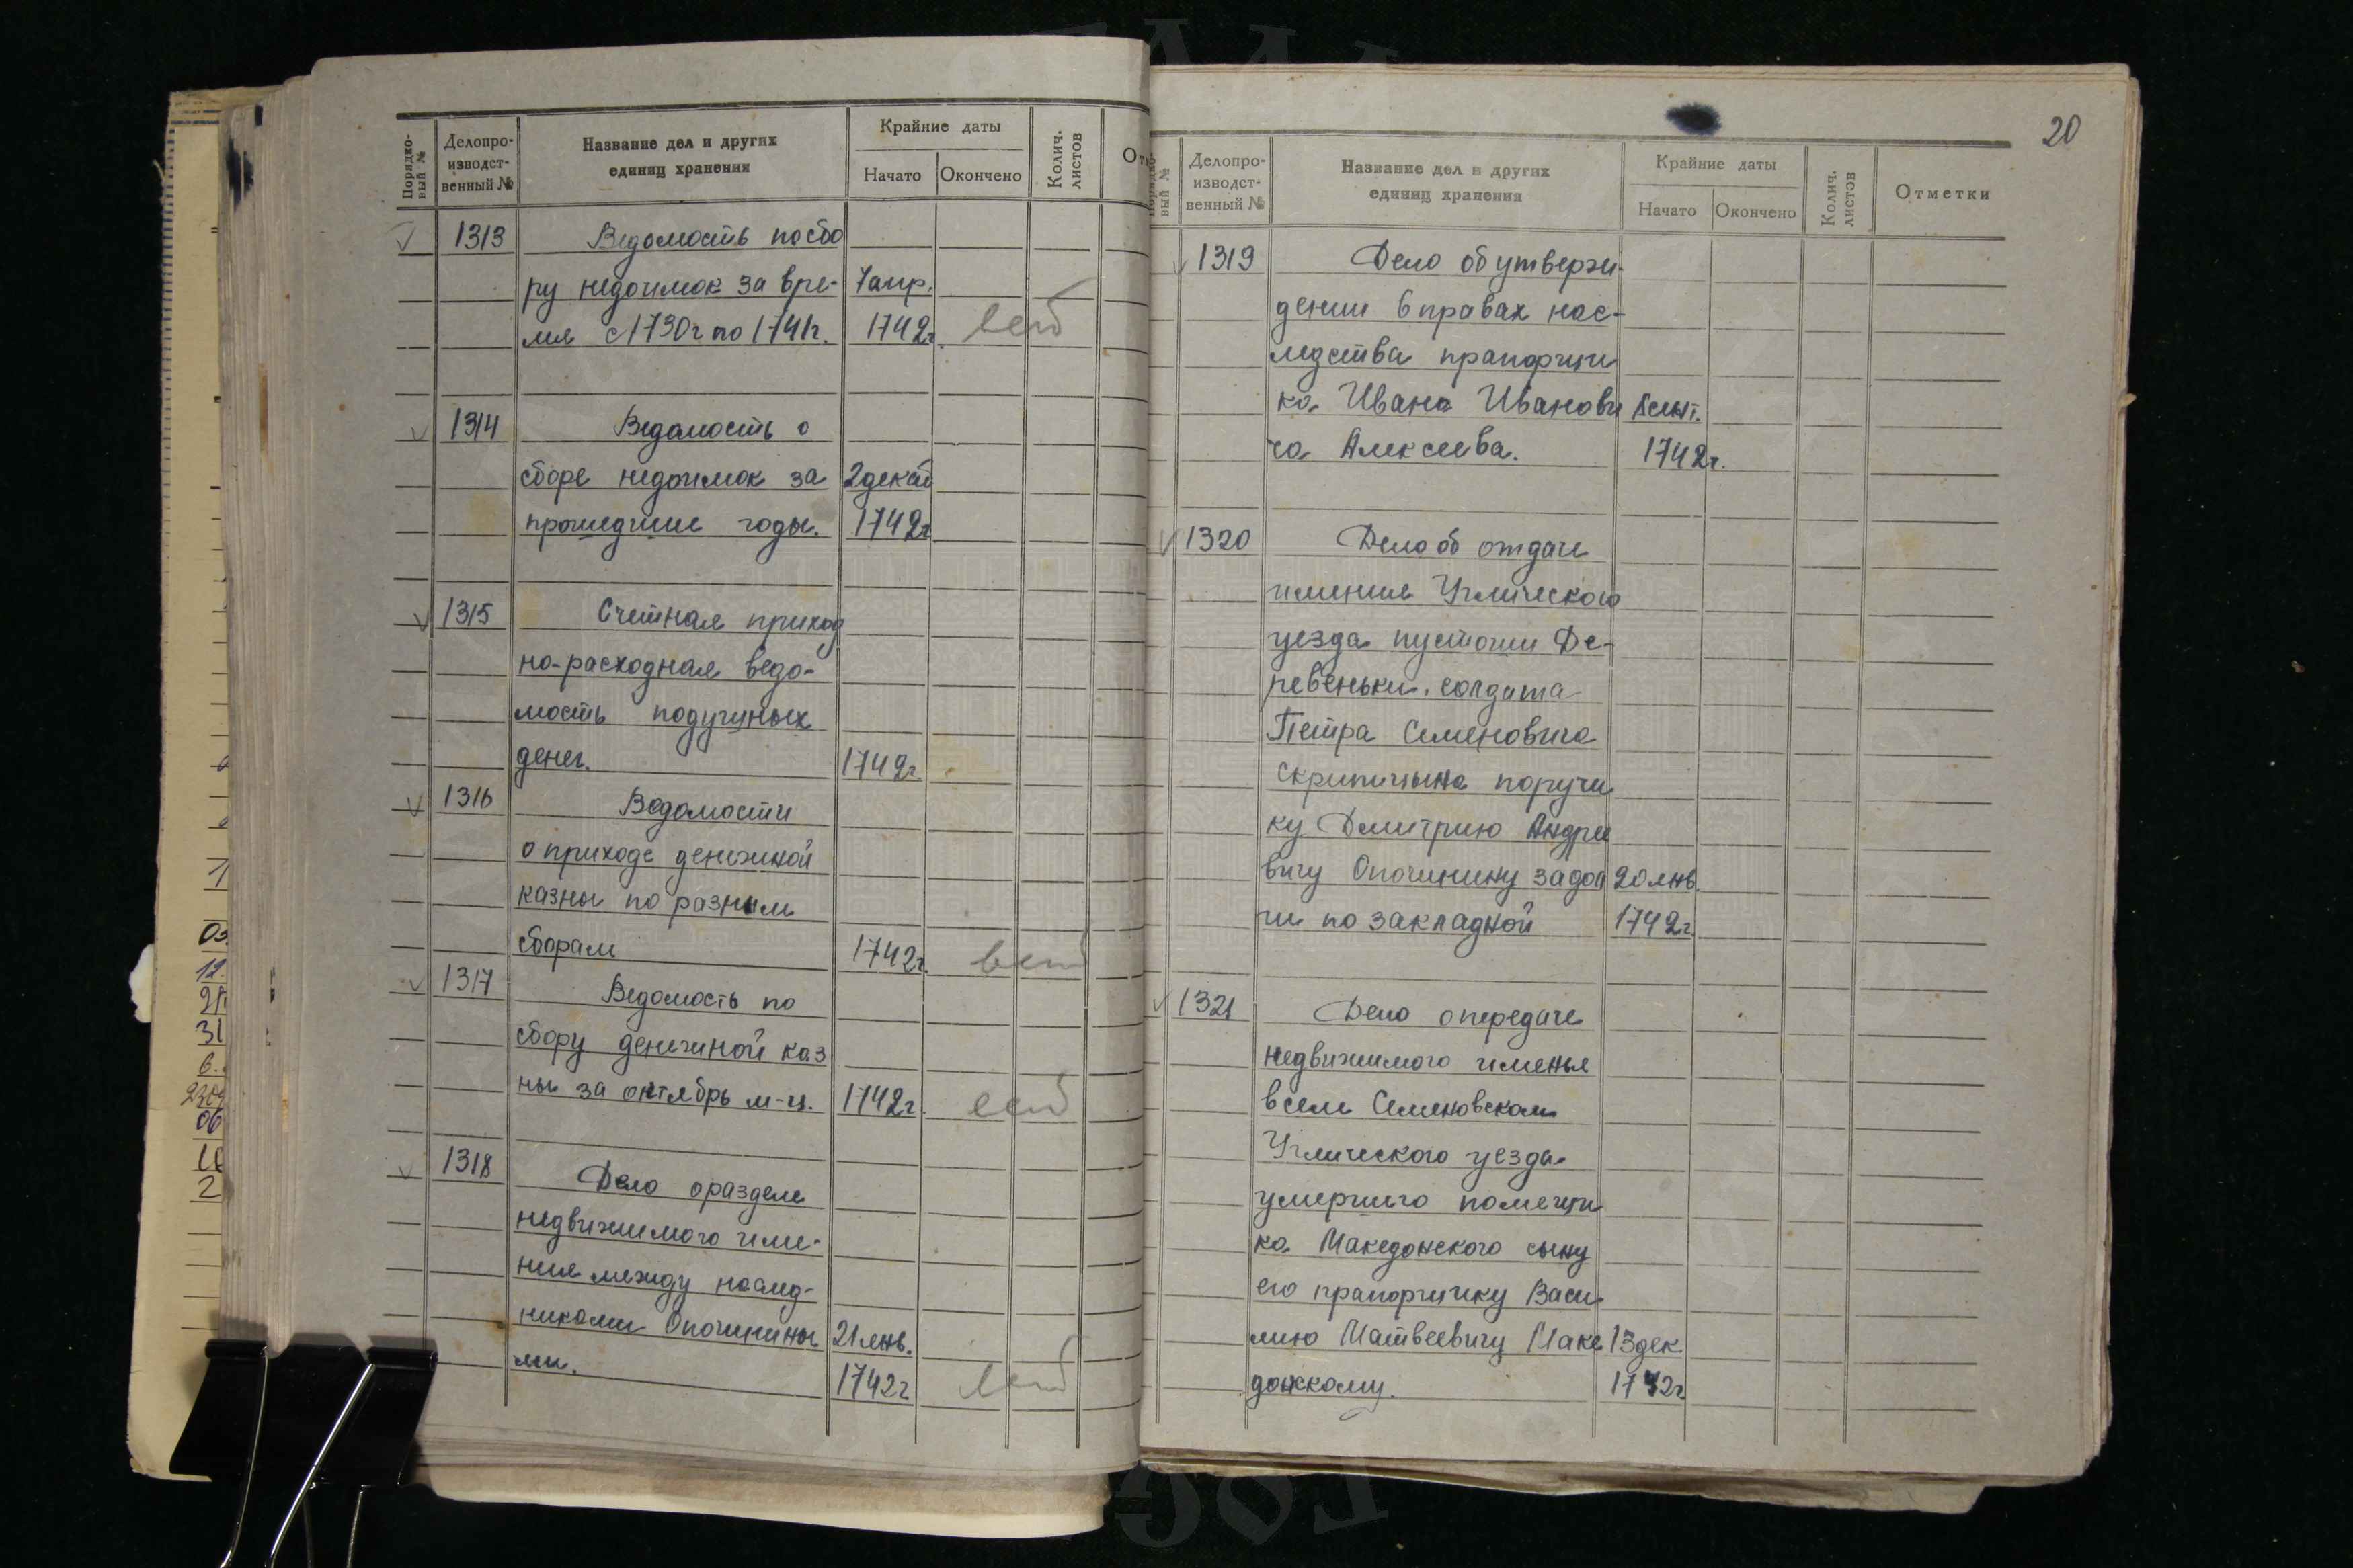 Порядко-
вый №
Делопро-
изводст-
венный №
Название дел и других
единиц хранения
Крайние даты
Начато
Окончено
Колич.
листов
От
1313
Ведомость по сбо
ру недоимок за вре- 7 апр.
мя с 1730г по 1741г. 1742г. есть
1314
Ведомость о
сборе недоимок за 2 декаб
прошедшие годы. 1742г
1315
Счетная приход
но-расходная ведо-
мость подушных
денег. 1742г
1316
Ведомости
о приходе денежной
казны по разным
сборам 1742г. есть
1317
Ведомость по
сбору денежной каз
ны за октябрь м-ц. 1742г. есть
1318
Дело о разделе
недвижимого име-
ния между наслед-
никами Опочинины 21 янв.
ми. 1742г есть
20
Порядко-
вый №
Делопро-
изводст-
венный №
Название дел и других
единиц хранения
Крайние даты
Начато
Окончено
Колич.
листов
Отметки
1319
Дело об утверж-
дении в правах нас-
ледства прапорщи
ка Ивана Иванови сент.
ча Алексеева. 1742г.
1320
Дело об отдаче
имения Угличского
уезда пустоши Де-
ревеньки, солдата
Петра Семеновича
Скрипицына поручи
ку Дмитрию Андрее
вичу Опочинину за дол 20 янв.
ги по закладной 1742г.
1321
Дело о передаче
недвижимого именья
в селе Семеновском
Угличского уезда
умершего помещи
ка Македонского сыну
его прапорщику Васи
лию Матвеевичу Маке 13 дек.
донскому. 1742г